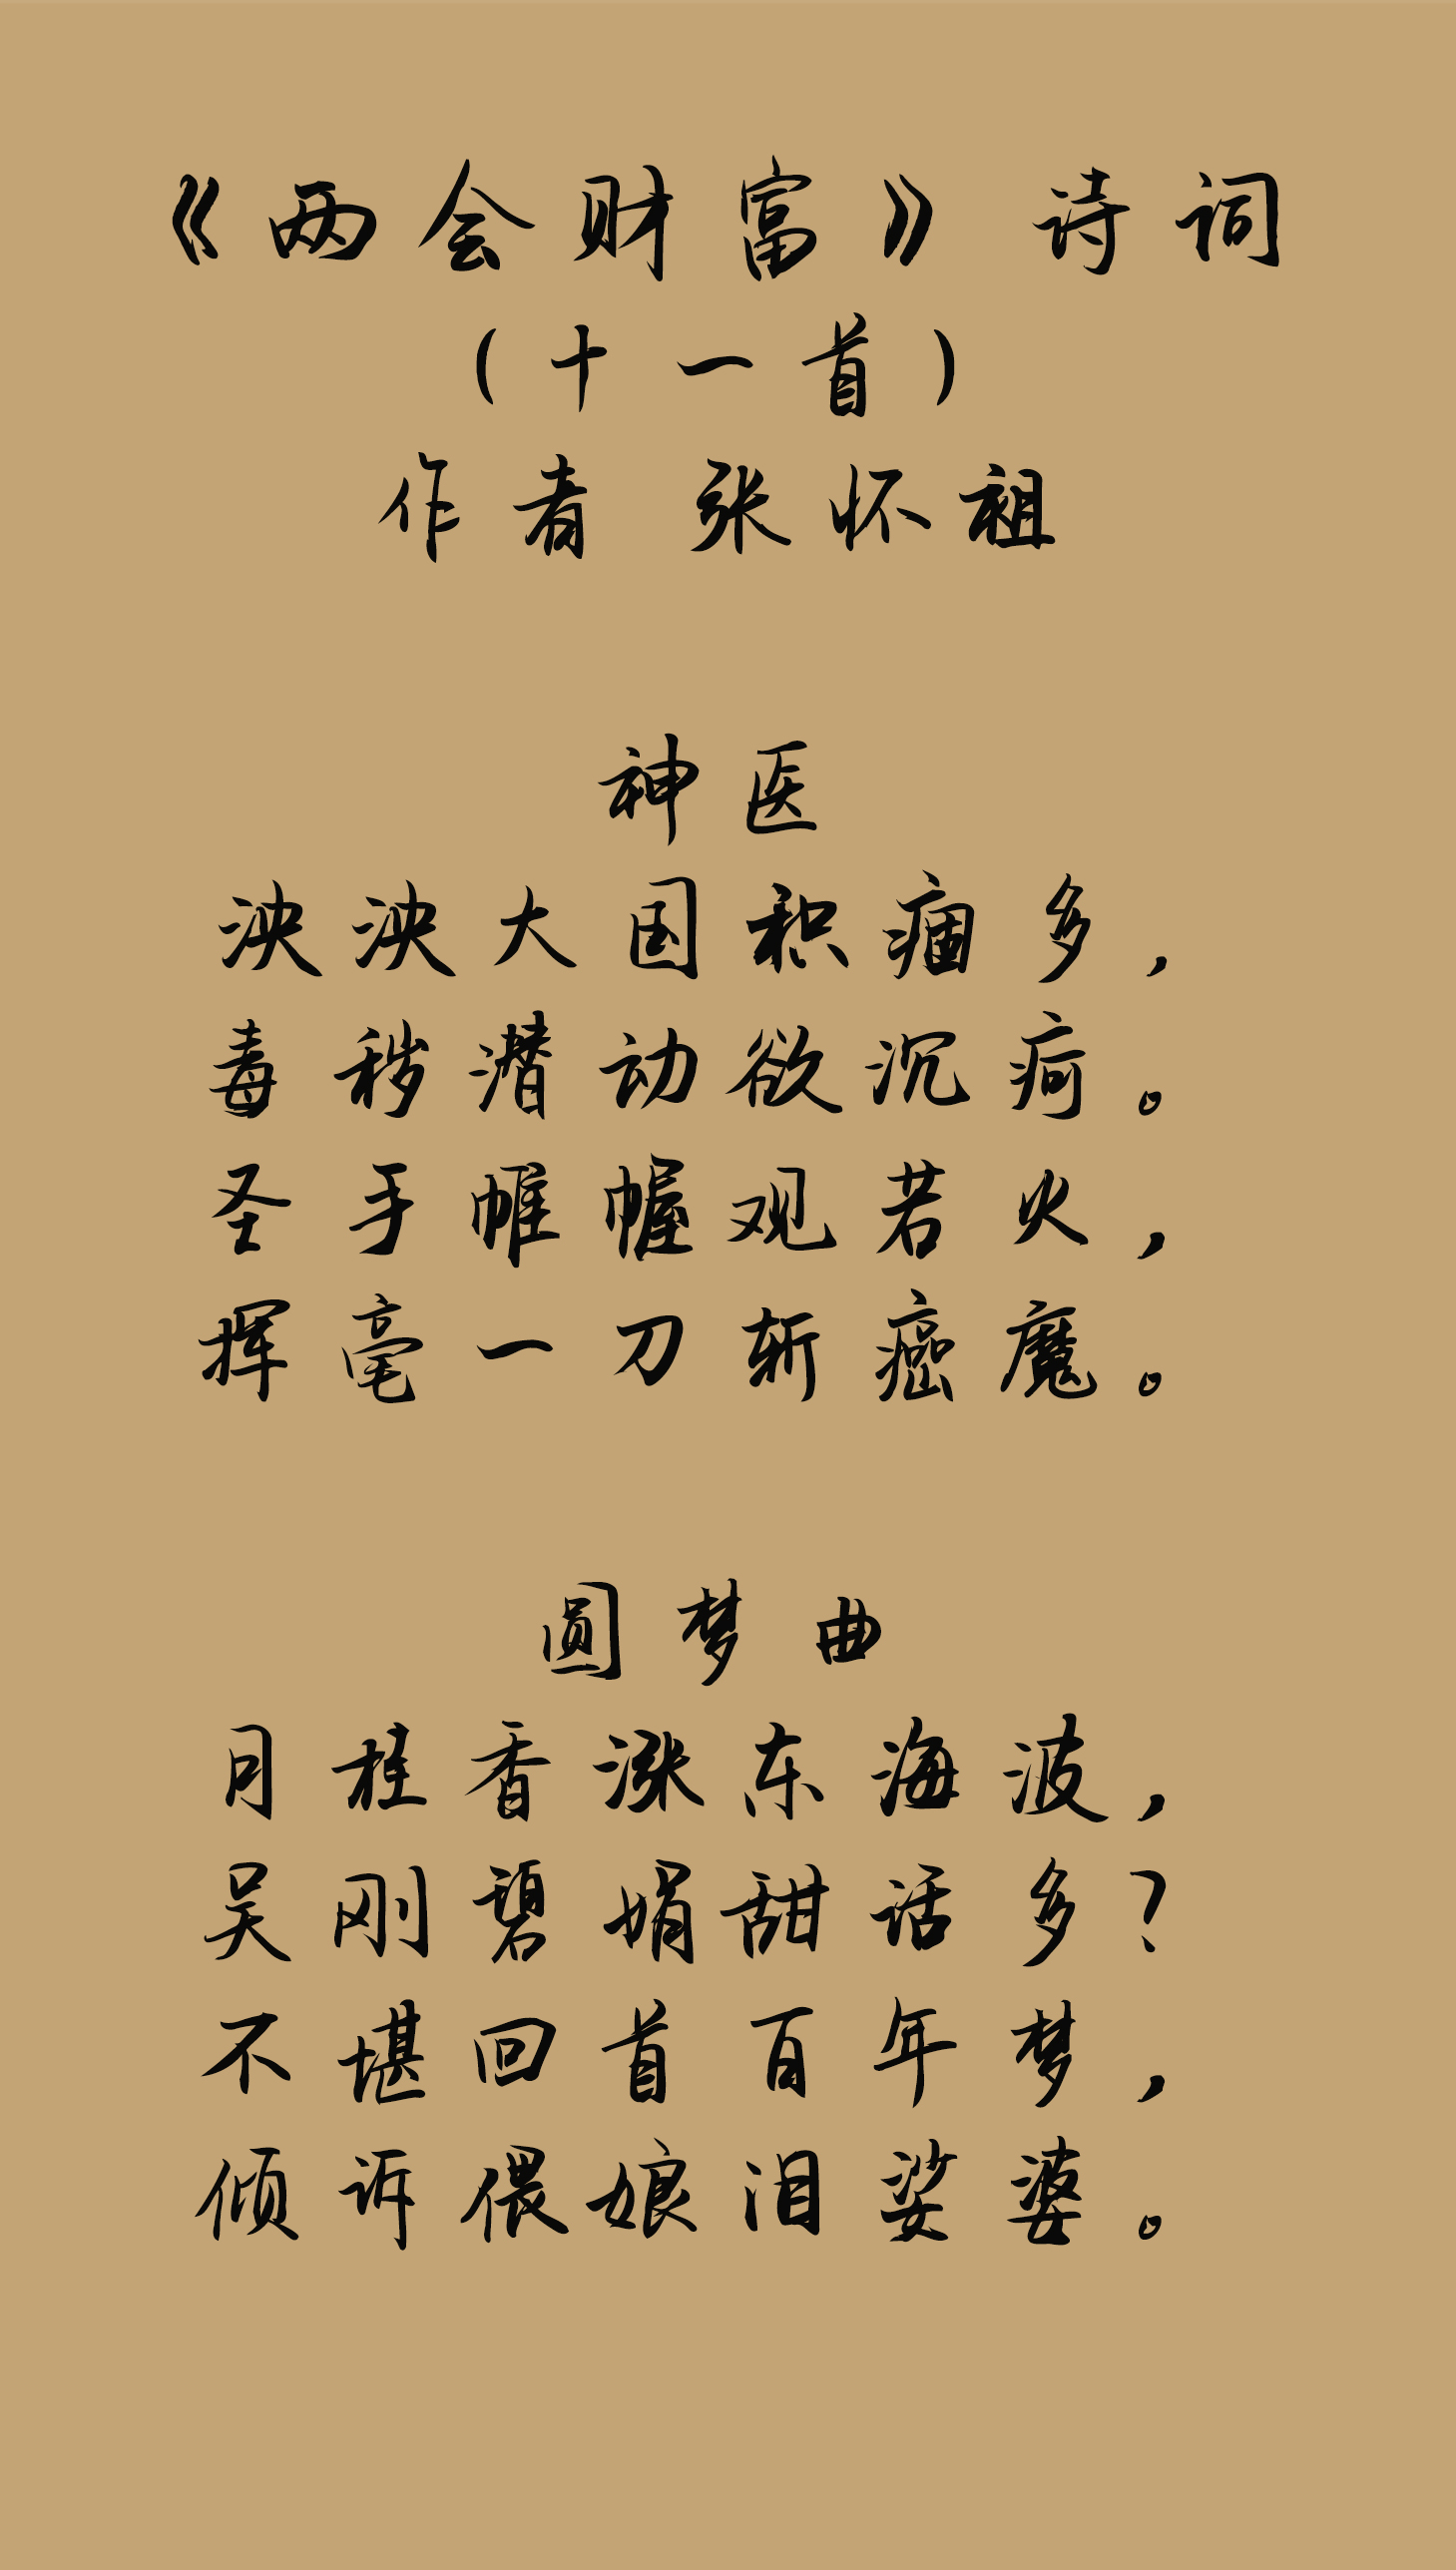 《两会财富》诗词
(十一首)
作者 张怀祖
神医
泱泱大国积痼多,
毒秽潜动欲沉疴。
圣手帷幄观若火,
挥毫一刀斩癌魔。
圆梦曲
月桂香涨东海波,
吴刚碧娟甜话多?
不堪回首百年梦,
倾诉偎娘泪娑婆。